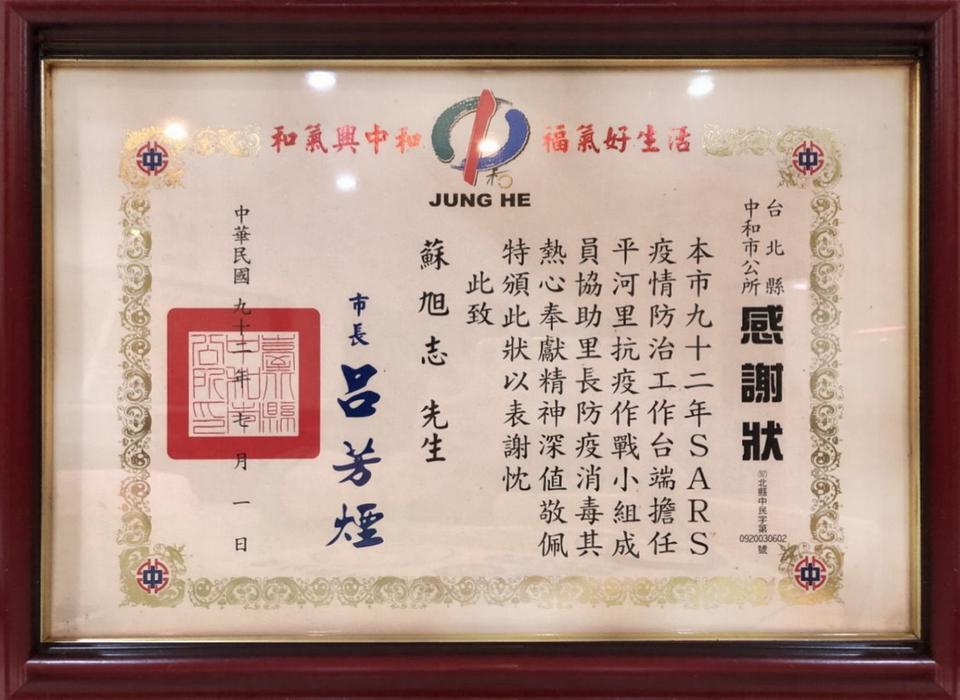 和氣興中和 福氣好生活
JUNG HE
台北縣
中和市公所
感謝狀
北縣中民字第
0920030602
號
本市九十二年SARS
疫情防治工作台端擔任
平河里抗疫作戰小組成
員協助里長防疫消毒其
熱心奉獻精神深值敬佩
特頒此狀以表謝忱
此致
蘇旭志 先生
市長 呂芳煙
中華民國九十二年七月一日